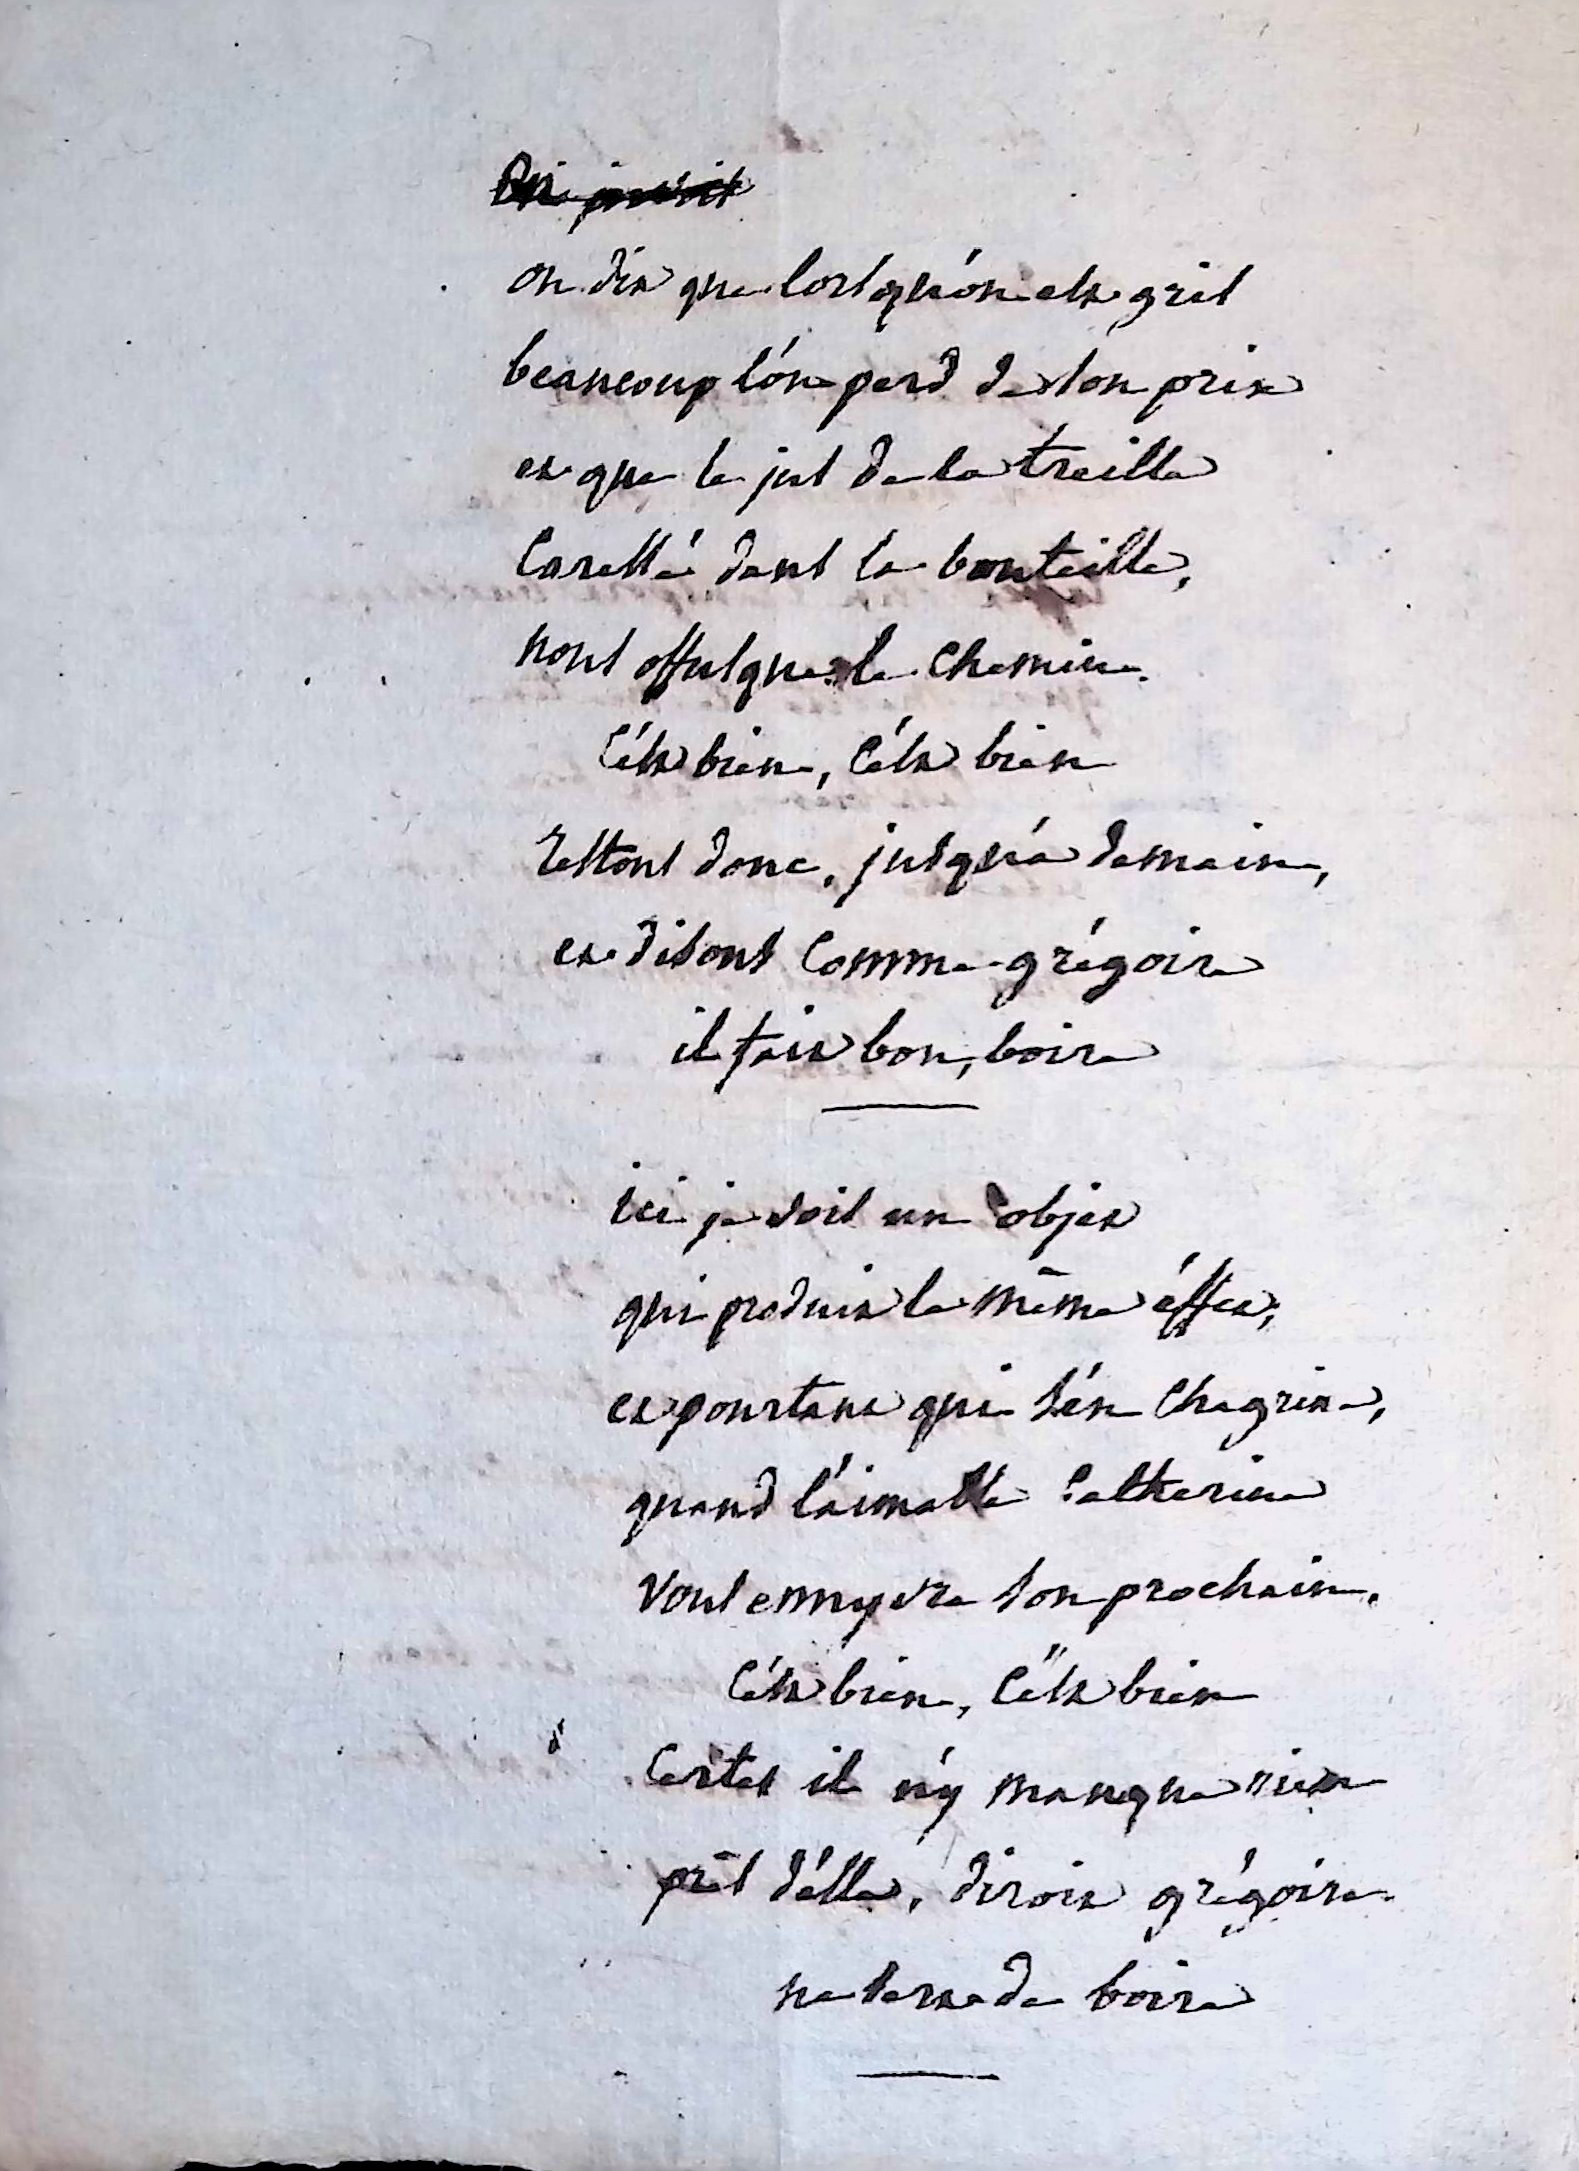 on dit que lorsqu'on est gris
beaucoup l'ón perd de son prix
et que le jus de la treille
Caressé dans la bouteille,
nous offusque le chemin.
C'ést bien, C'ést bien
restons donc, jusqu'á demain,
et disons Comme grégoire
il fait bon, boire
ici je vois un objet
qui produit le même éffet,
et pourtant qui s'én Chagrine,
quand l'áimable Catherine
Vous ennyvre son prochain.
C'ést bien, C'ést bien
Certes il n'y manque rien
prês d'élle, diroit grégoire
ne sert de boire